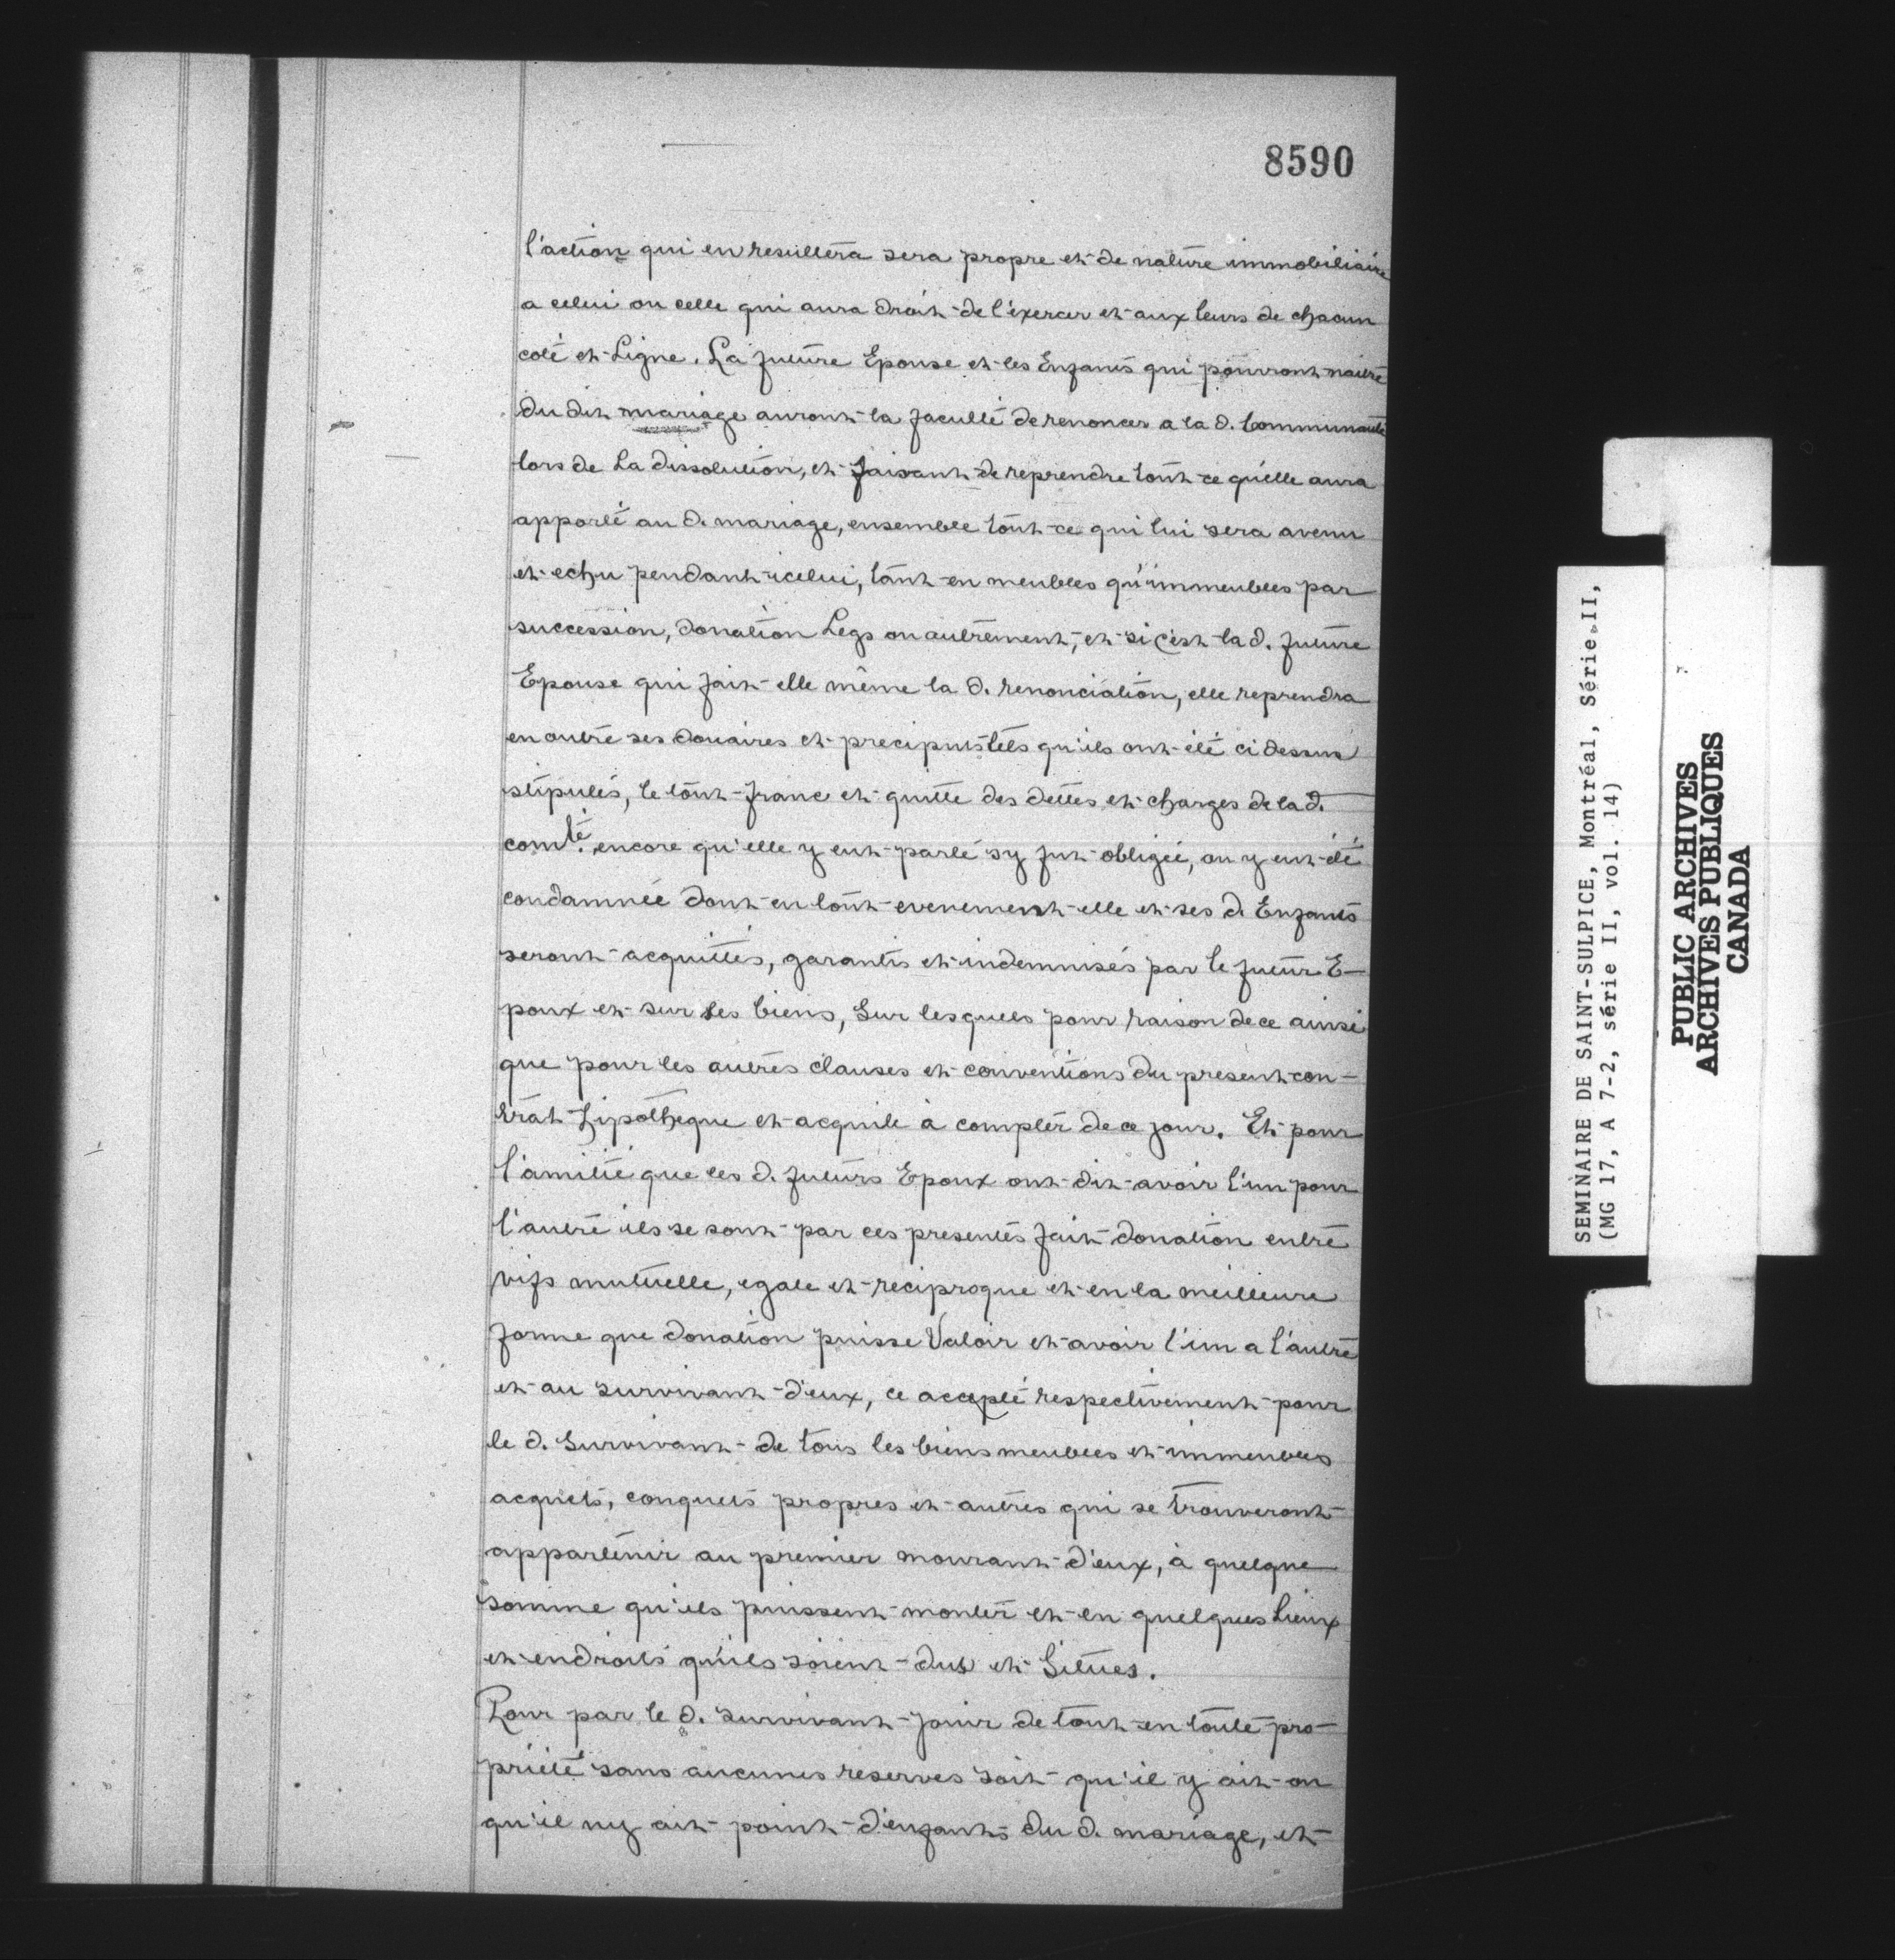 8590
l'action qui en resultera sera propre et de nature immobiliaire
a celui ou celle qui aura droit de l'exercer et aux leurs de chacun
coté et Ligne. La future Epouse et les Enfants qui pourront naitre
du dit mariage auront la faculté de renoncer a la d. Communauté
lors de La dissolution, et faisant de reprendre tout ce qu'elle aura
apporté au d. mariage, ensemble tout ce qui lui sera avenu
et echu pendant icelui, tant en meubles qu'immeubles par
succession, donation Legs ou autrement, et si c'est la d. future
Epouse qui fait elle même la d. renonciation, elle reprendra
en outre ses douaires et preciputs tels qu'ils ont été ci dessus
stipulés, le tout franc et quitte des dettes et charges de la d.
comté. encore qu'elle y eut parlé s'y fut obligée, ou y eut été
condamnée dont en tout evenement elle et ses d. Enfants
seront acquittés, garantis et indemnisés par le futur E-
poux et sur ses biens, Sur lesquels pour raison de ce ainsi
que pour les autres clauses et conventions du present con-
trat hipotheque et acquile à compter de ce jour. Et pour
l'amitié que les d. futurs Epoux ont dit avoir l'un pour
l'autre ils se sont par ces presentes fait donation entre
vifs mutuelle, egale et reciproque et en la meilleure
forme que donation puisse Valoir et avoir l'un a l'autre
et au survivant d'eux, ce accepté respectivement pour
le d. Survivant de tous les biens meubles et immeubles
acquets, conquets propres et autres qui se trouveront
appartenir au premier mourant d'eux, à quelque
somme qu'ils puissent monter et en quelques Lieux
et endroits qu'ils soient dus et Situes.
Pour par le d. survivant jouir de tout en toute pro-
priété sans aucunes reserves soit qu'il y ait ou
qu'il ny ait point d'enfants du d. mariage, et
SEMINAIRE DE SAINT-SULPICE, Montréal, Série II,
(MG 17, A 7-2, série II, vol. 14)
PUBLIC ARCHIVES
ARCHIVES PUBLIQUES
CANADA